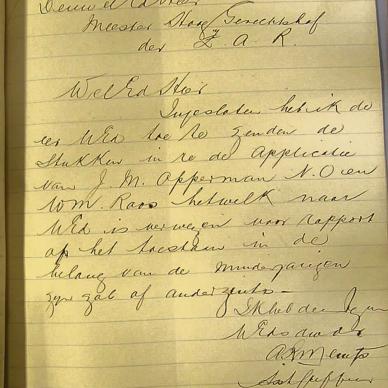 Meester Hoog Gerechtshof
der Z. A. R.
WelEd Heer
Ingesloten heb ik de
eer WEd toe te zenden de
stukken in re de Applicatie
van J. M. Opperman N.O en
W M. Roos hetwelk naar
WEd is verwezen voor rapport
op het toestaan in de
belang van de minderjarigen
zyn zal of anderzints -
Ik heb de
WEds dw dr